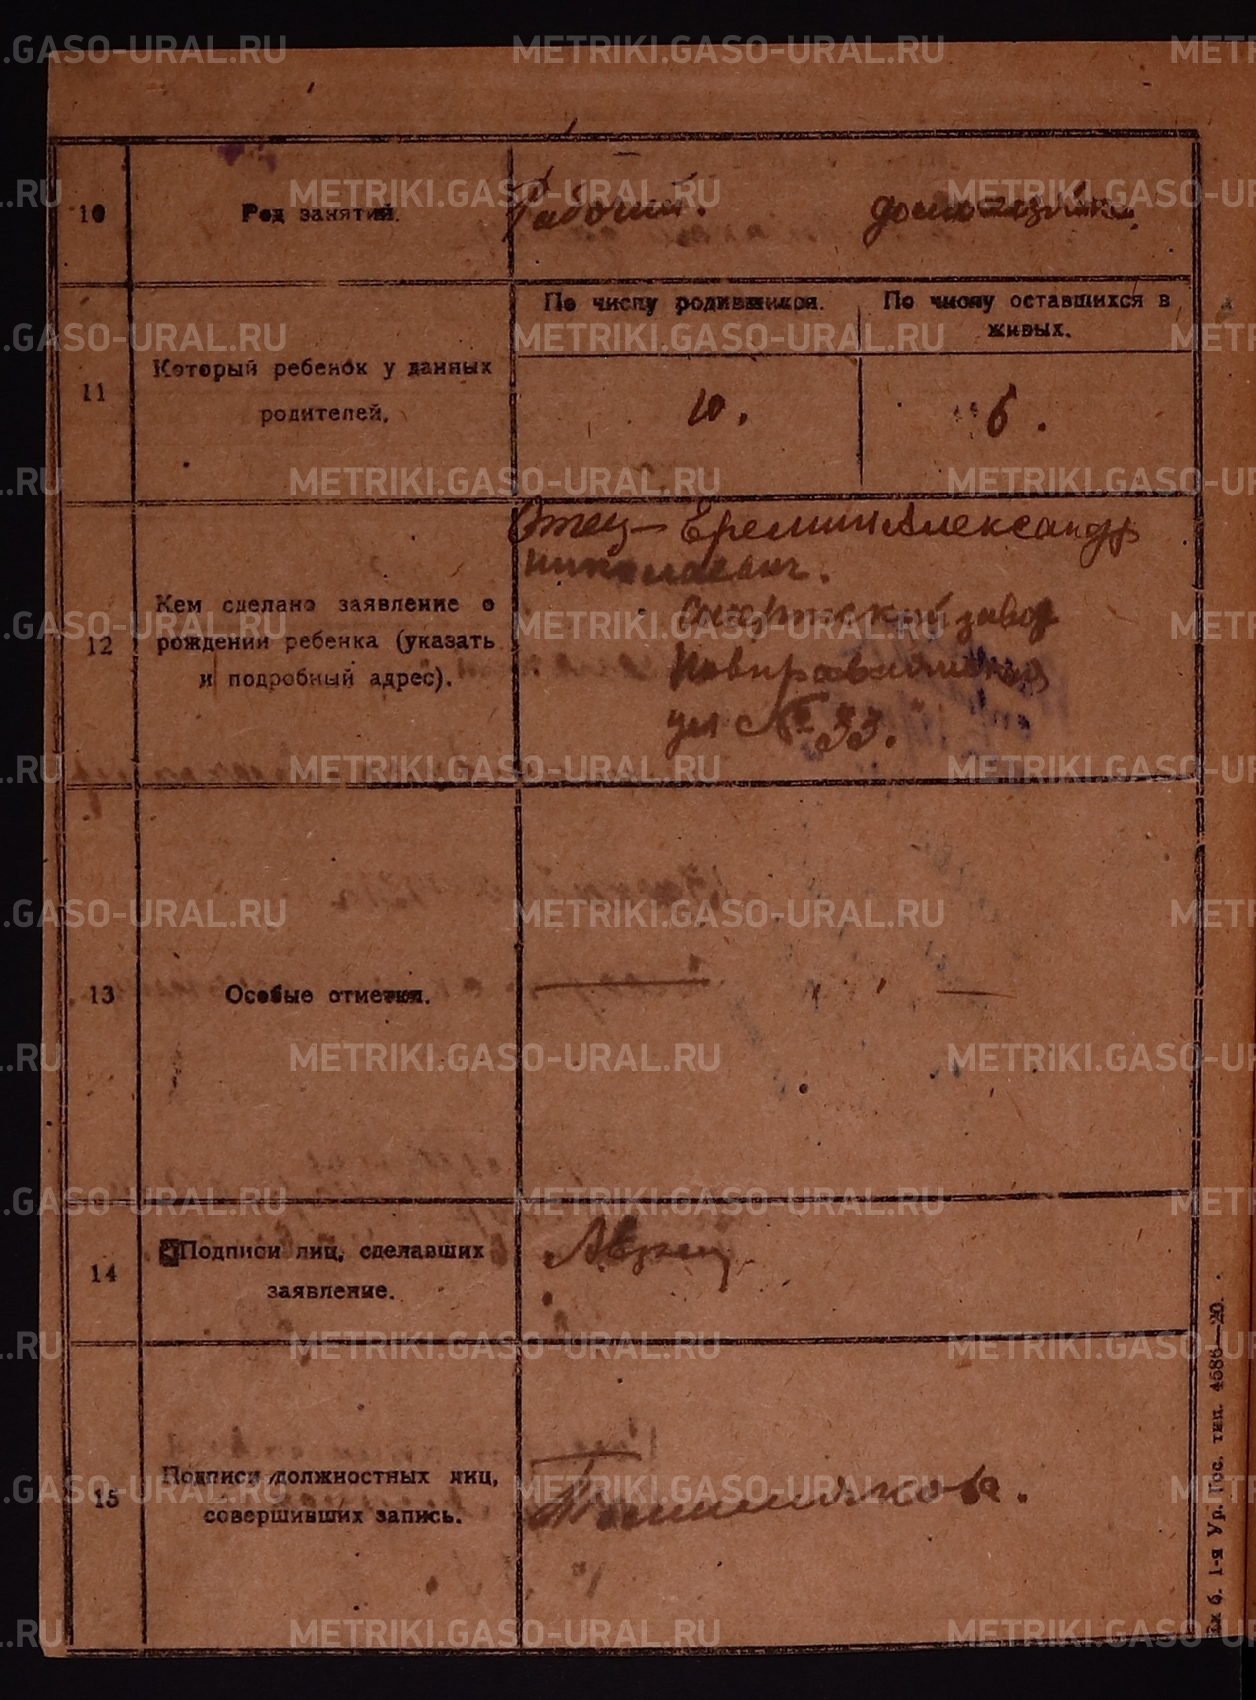 METRIKI.GASO-URAL.RU
10
Род занятий.
Рабочий.
домохозяйка.
11
Который ребенок у данных
родителей.
По числу родившихся.
По числу оставшихся в
живых.
10.
6.
12
Кем сделано заявление о
рождении ребенка (указать
и подробный адрес).
Отец — Еремин Александр
Николаевич.
завод
ул № 33.
13
Особые отметки.
14
Подписи лиц, сделавших
заявление.
15
Подписи должностных лиц,
совершивших запись.
1-я Ур. Гос. тип. 4586—20.